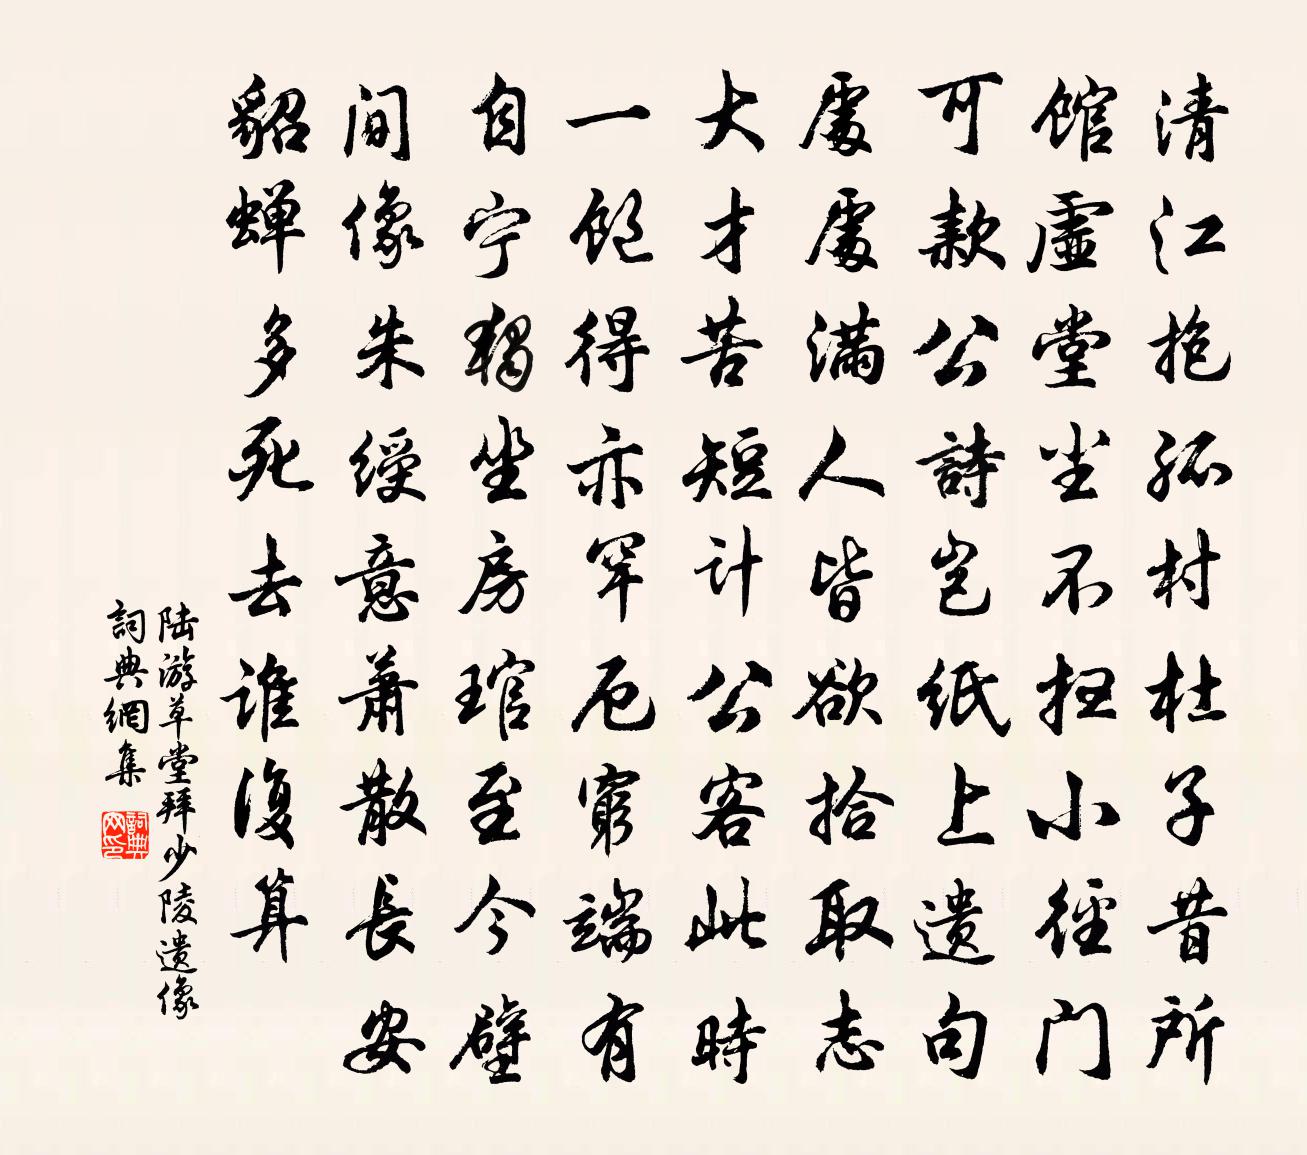 清江抱孤村杜子昔所
馆虚堂尘不扫小径门
可款公詩岂纸上遗句
處處满人皆欲拾取志
大才苦短计公客此時
一饱得亦罕厄窮端有
自宁独坐房琯至今壁
间像朱绶意萧散長安
貂蝉多死去谁復算
陆游草堂拜少陵遗像
詞典網集
詞典网印